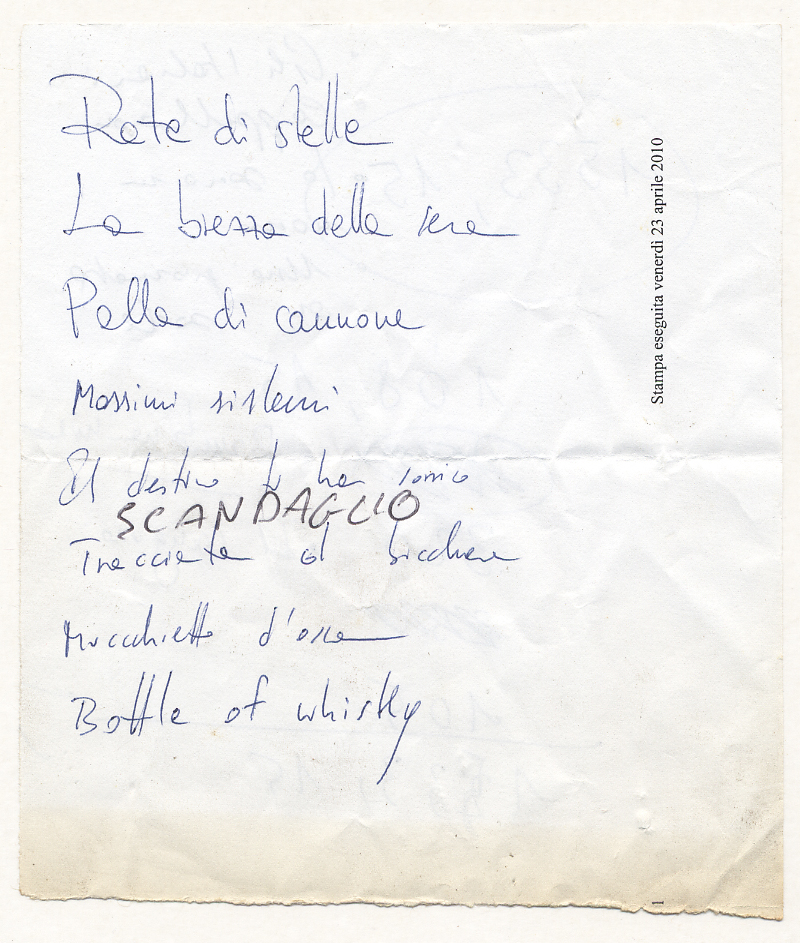 Rete di stelle
La brezza della sera
Palla di cannone
Massimi sistemi
El destino ti ha
SCANDAGLIO
Tracciata al bicchiere
Mucchietto d'ossa
Bottle of whisky
Stampa eseguita venerdì 23 aprile 2010
1